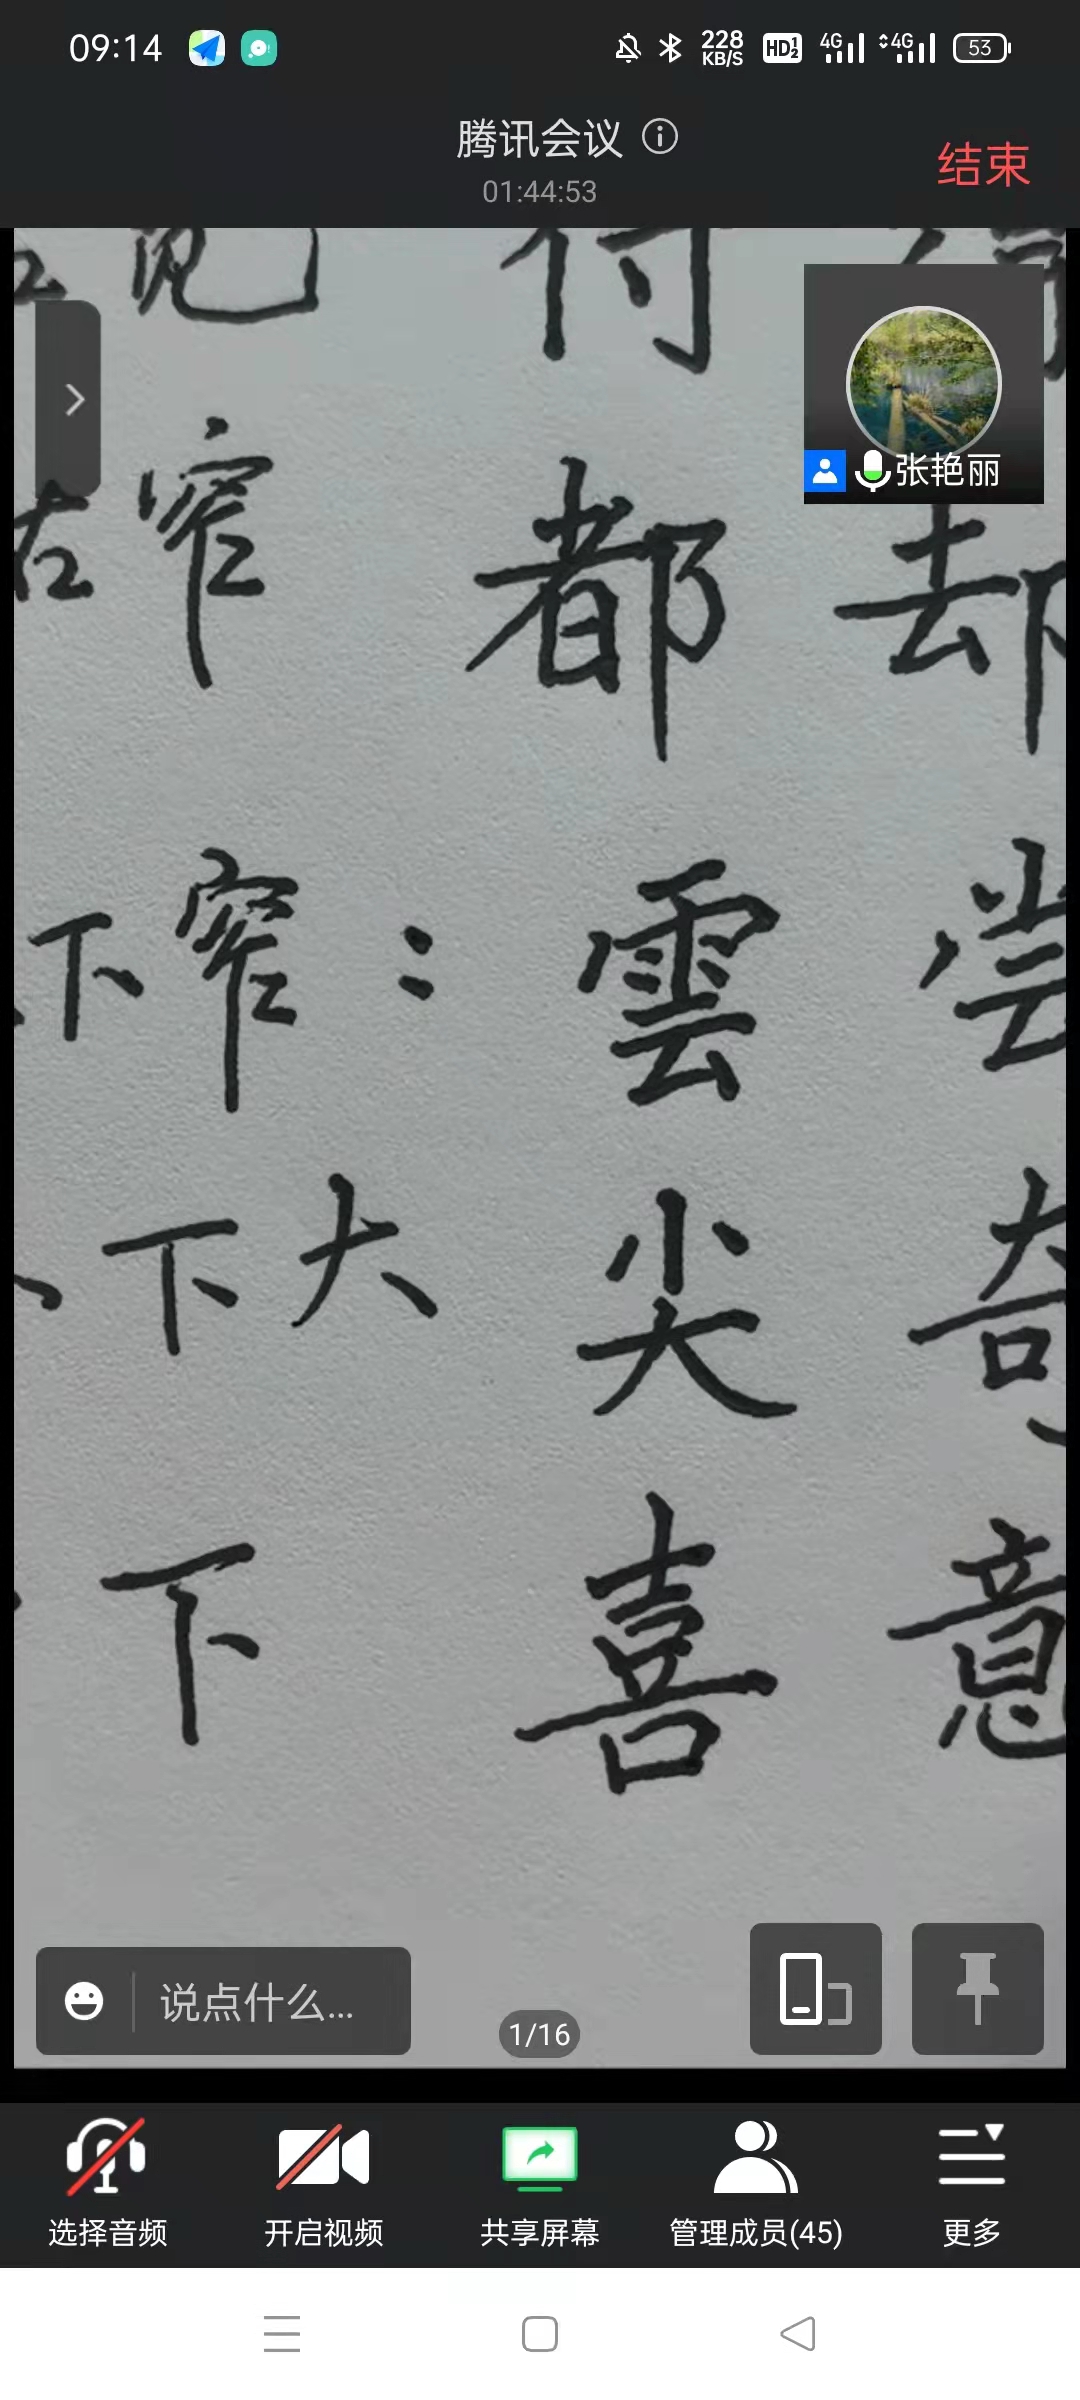 09:14
228 KB/S
HD 1 2
4G
4G
53
腾讯会议
01:44:53
结束
宽 得
张艳丽
右 窄 都 却
下窄： 雲 尝
下大 尖 奇
下 喜 意
说点什么...
1/16
选择音频 开启视频 共享屏幕 管理成员(45) 更多